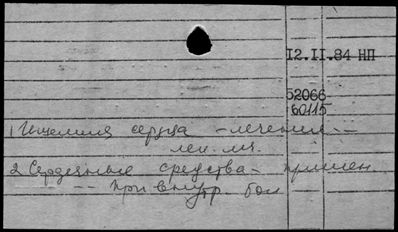 12.II.84 НП
52066
60115
1 Ишемия сердца - лечение --
лек. ля.
2 Сердечные средства - примен.
-- при внутр. бол.